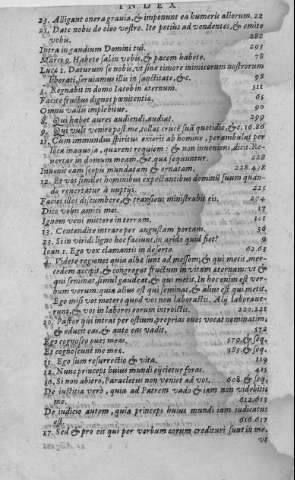 INDEX
23. Alligant onera grauia, & imponunt ea humeris aliorum. 22
25. Date nobis de oleo vestro. Ite potius ad vendentes, & emite
vobis. 282
Intra in gaudium Domini tui. 295
Marc. 9. Habete salem in vobis, & pacem habete. 78
Luc. 1. Daturum se nobis, vt sine timore inimicorum nostrorum
liberati, seruiamus illi in sanctitate, &c. 98
Regnabit in domo Iacob in æternum. 311
Facite fructus dignos pœnitentiæ. 65
Omnis vallis implebitur. 90
8. Qui habet aures audiendi, audiat. 299
9. Qui vult venire post me, tollat crucem suā quotidie, &c. 16.26
11. Cum immundus spiritus exierit ab homine, perambulat per
loca inaquosa, quærens requiem: & non inueniens, dicit, Re-
uertar in domum meam, & quæ sequuntur. 228
Inuenit eam scopis mundatam & ornatam. 228.418
12. Et vos similes hominibus expectantibus dominū suum quan-
do reuertatur à nuptijs. 225
Faciet illos discumbere, & transiens ministrabit eis. 294
Dico vobis amicis meis. 17
Ignem veni mittere in terram. 101
13. Contendite intrare per angustam portam. 36
23. Si in viridi ligno hoc faciunt, in arido quid fiet? 9
Ioan. 1. Ego vox clamantis in deserto. 62.63
4. Videte regiones quia albæ sunt ad messem, & qui metit, mer-
cedem accipit, & congregat fructum in vitam æternam: vt &
qui seminat, simul gaudeat, & qui metit. In hoc enim est ver-
bum verum: quia alius est qui seminat, & alius est qui metit.
Ego misi vos metere quod vos non laborastis. Alij laboraue-
runt, & vos in labores eorum introistis. 220.221
10. Pastor qui intrat per ostium, proprias oues vocat nominatim,
& educit eas, & ante eas vadit. 172
Ego cognosco oues meas. 179. & seq.
Et cognoscunt me meæ. 183. & seq.
11. Ego sum resurrectio & vita. 119
12. Nunc princeps huius mundi eijcietur foras. 411
16. Si non abiero, Paracletus non veniet ad vos. 608 & seq.
De iustitia verò, quia ad Patrem vado & iam non videbitis
me. 612.613
De iudicio autem, quia princeps huius mundi iam iudicatus
est. 610.613
17. Sed & pro eis qui per verbum eorum credituri sunt in me,
vt